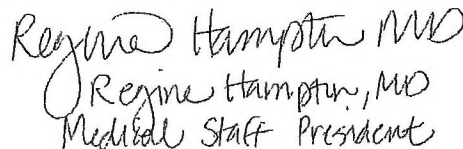 Regine Hampton MD
Regine Hampton, MD
Medical Staff President